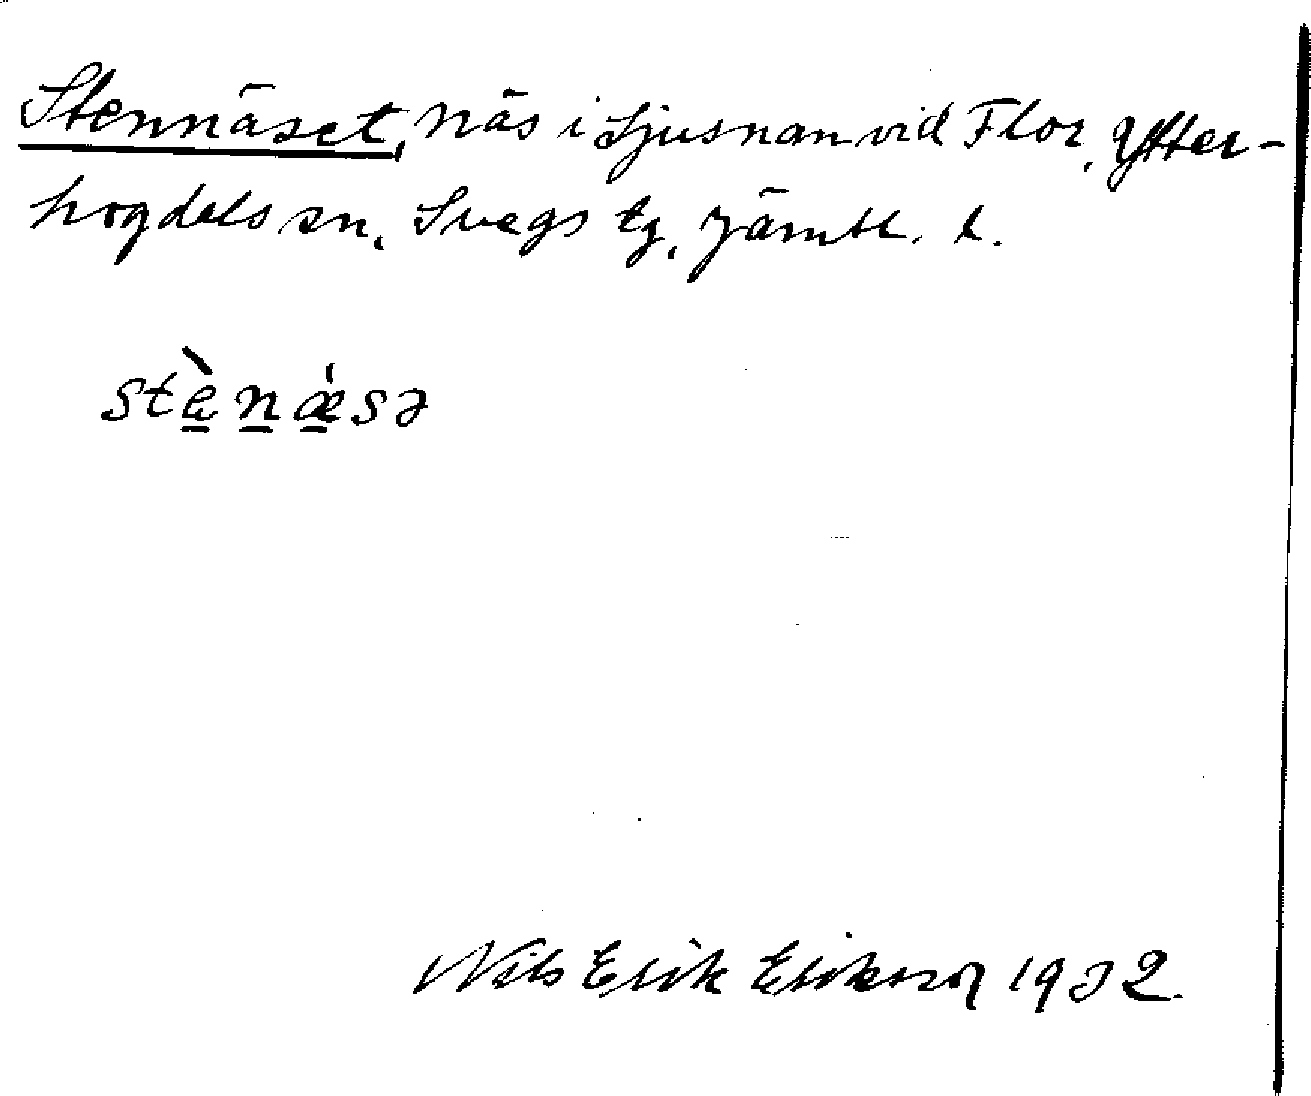 Stennäset, näs i Ljusnan vid Flor, Ytter-
hogdals sn, Svegs tg, Jämtl. l.
stè̱ṉǽ̱sə
Nils Erik Erikson 1932.